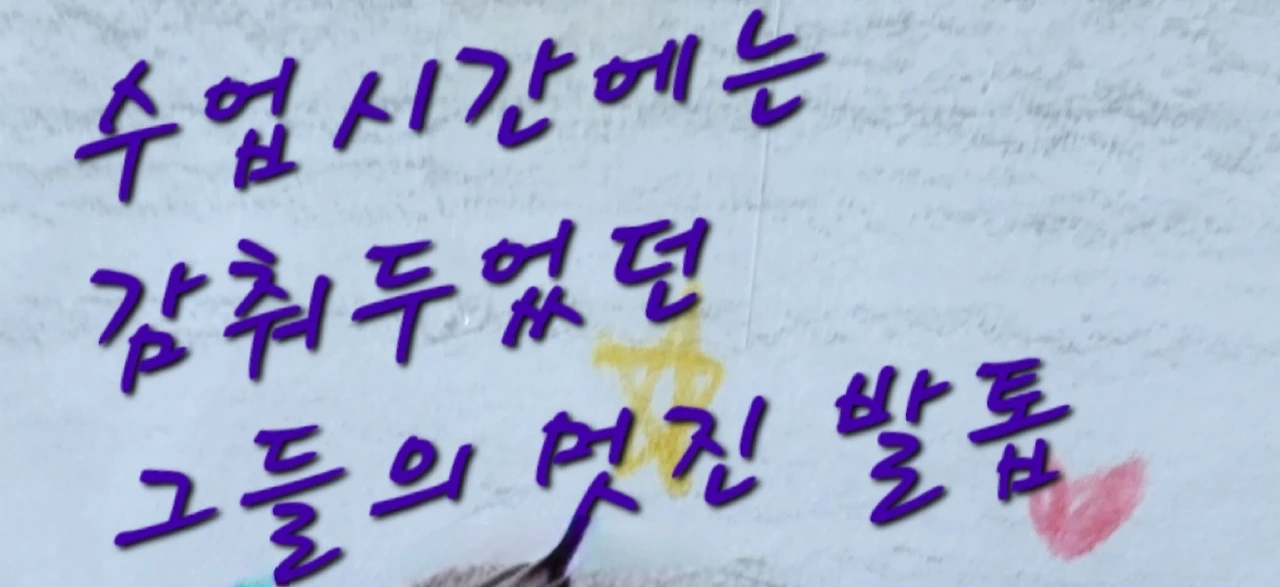 수업시간에는
감춰두었던
그들의 멋진 발톱